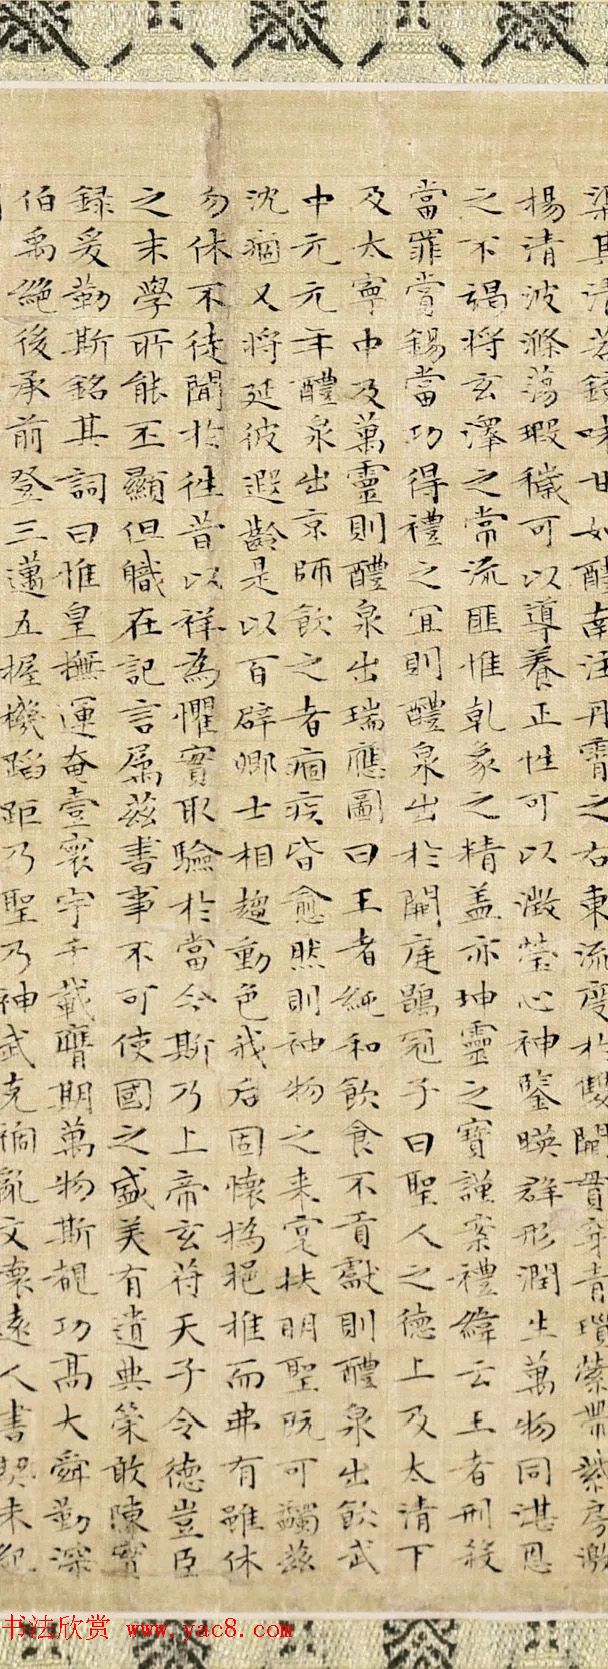 梁其清若鏡味甘如醴南注丹霄之右東流度於雙闕貫穿青瑣縈帶紫房激
楊清波滌蕩瑕穢可以導養正性可以澂瑩心神鑒暎群形潤生萬物同湛恩
之不竭將玄澤之常流匪惟乾象之精蓋亦坤靈之寶謹案禮緯云王者刑殺
當罪賞錫當功得禮之宜則醴泉出於闕庭鶡冠子曰聖人之德上及太清下
及太寧中及萬靈則醴泉出瑞應圖曰王者純和飲食不貢獻則醴泉出飲武
中元元年醴泉出京師飲之者痼疾皆愈然則神物之來寔扶明聖既可蠲茲
沈痼又將延彼遐齡是以百辟卿士相趨動色我后固懷撝挹推而弗有雖休
勿休不徒聞於往昔以祥為懼實取驗於當今斯乃上帝玄符天子令德豈臣
之末學所能丕顯但職在記言屬茲書事不可使國之盛美有遺典策敢陳實
録爰勒斯銘其詞曰惟皇撫運奄壹寰宇千載膺期萬物斯覩功高大舜勤深
伯禹絶後承前登三邁五握機蹈距乃聖乃神武克禍亂文懷遠人書契未紀
书法欣赏 www.yac8.com